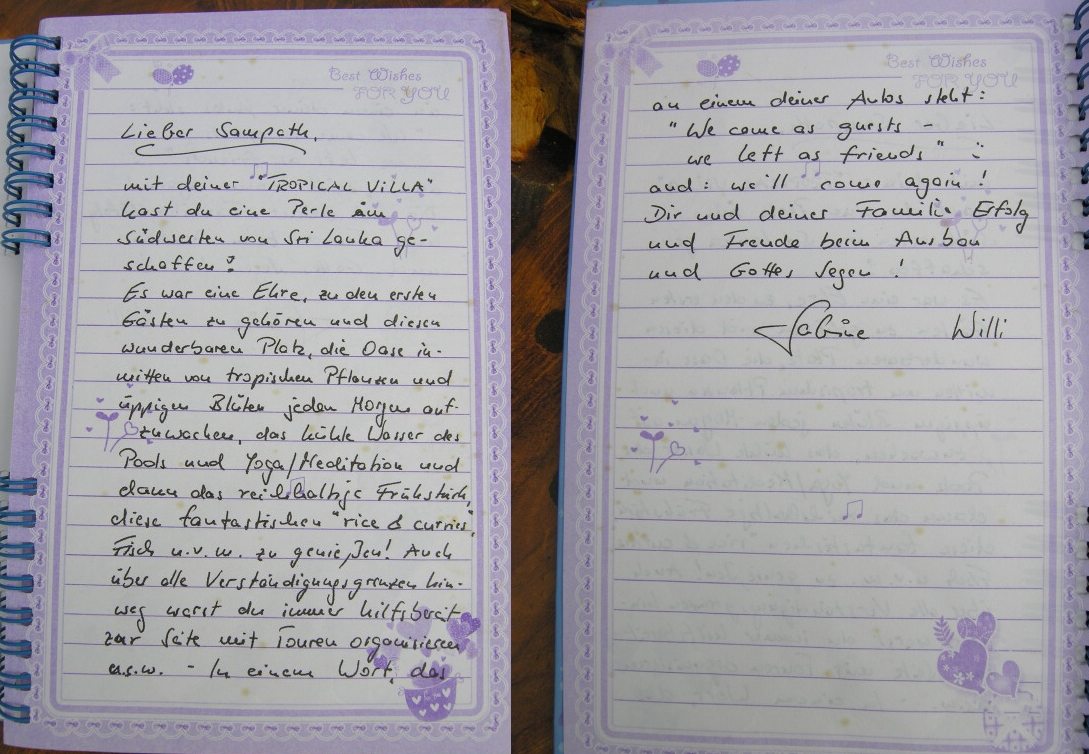 Best Wishes
FOR YOU
Lieber Sampath,
mit deiner "TROPICAL VILLA"
hast du eine Perle im
Südwesten von Sri Lanka ge-
schaffen!
Es war eine Ehre, zu den ersten
Gästen zu gehören und diesen
wunderbaren Platz, die Oase in-
mitten von tropischen Pflanzen und
üppigen Blüten jeden Morgen auf-
zuwachen, das kühle Wasser des
Pools und Yoga/Meditation und
dann das reichhaltige Frühstück,
diese fantastischen "rice & curries",
Fisch u.v.m. zu genießen! Auch
über alle Verständigungsgrenzen hin-
weg warst du immer hilfsbereit
zur Seite mit Touren organisieren
u.s.w. - In einem Wort, das
Best Wishes
FOR YOU
an einem deiner Autos steht:
"We come as guests -
we left as friends" :-
and: we'll come again!
Dir und deiner Familie Erfolg
und Freude beim Ausbau
und Gottes Segen!
Sabine Willi